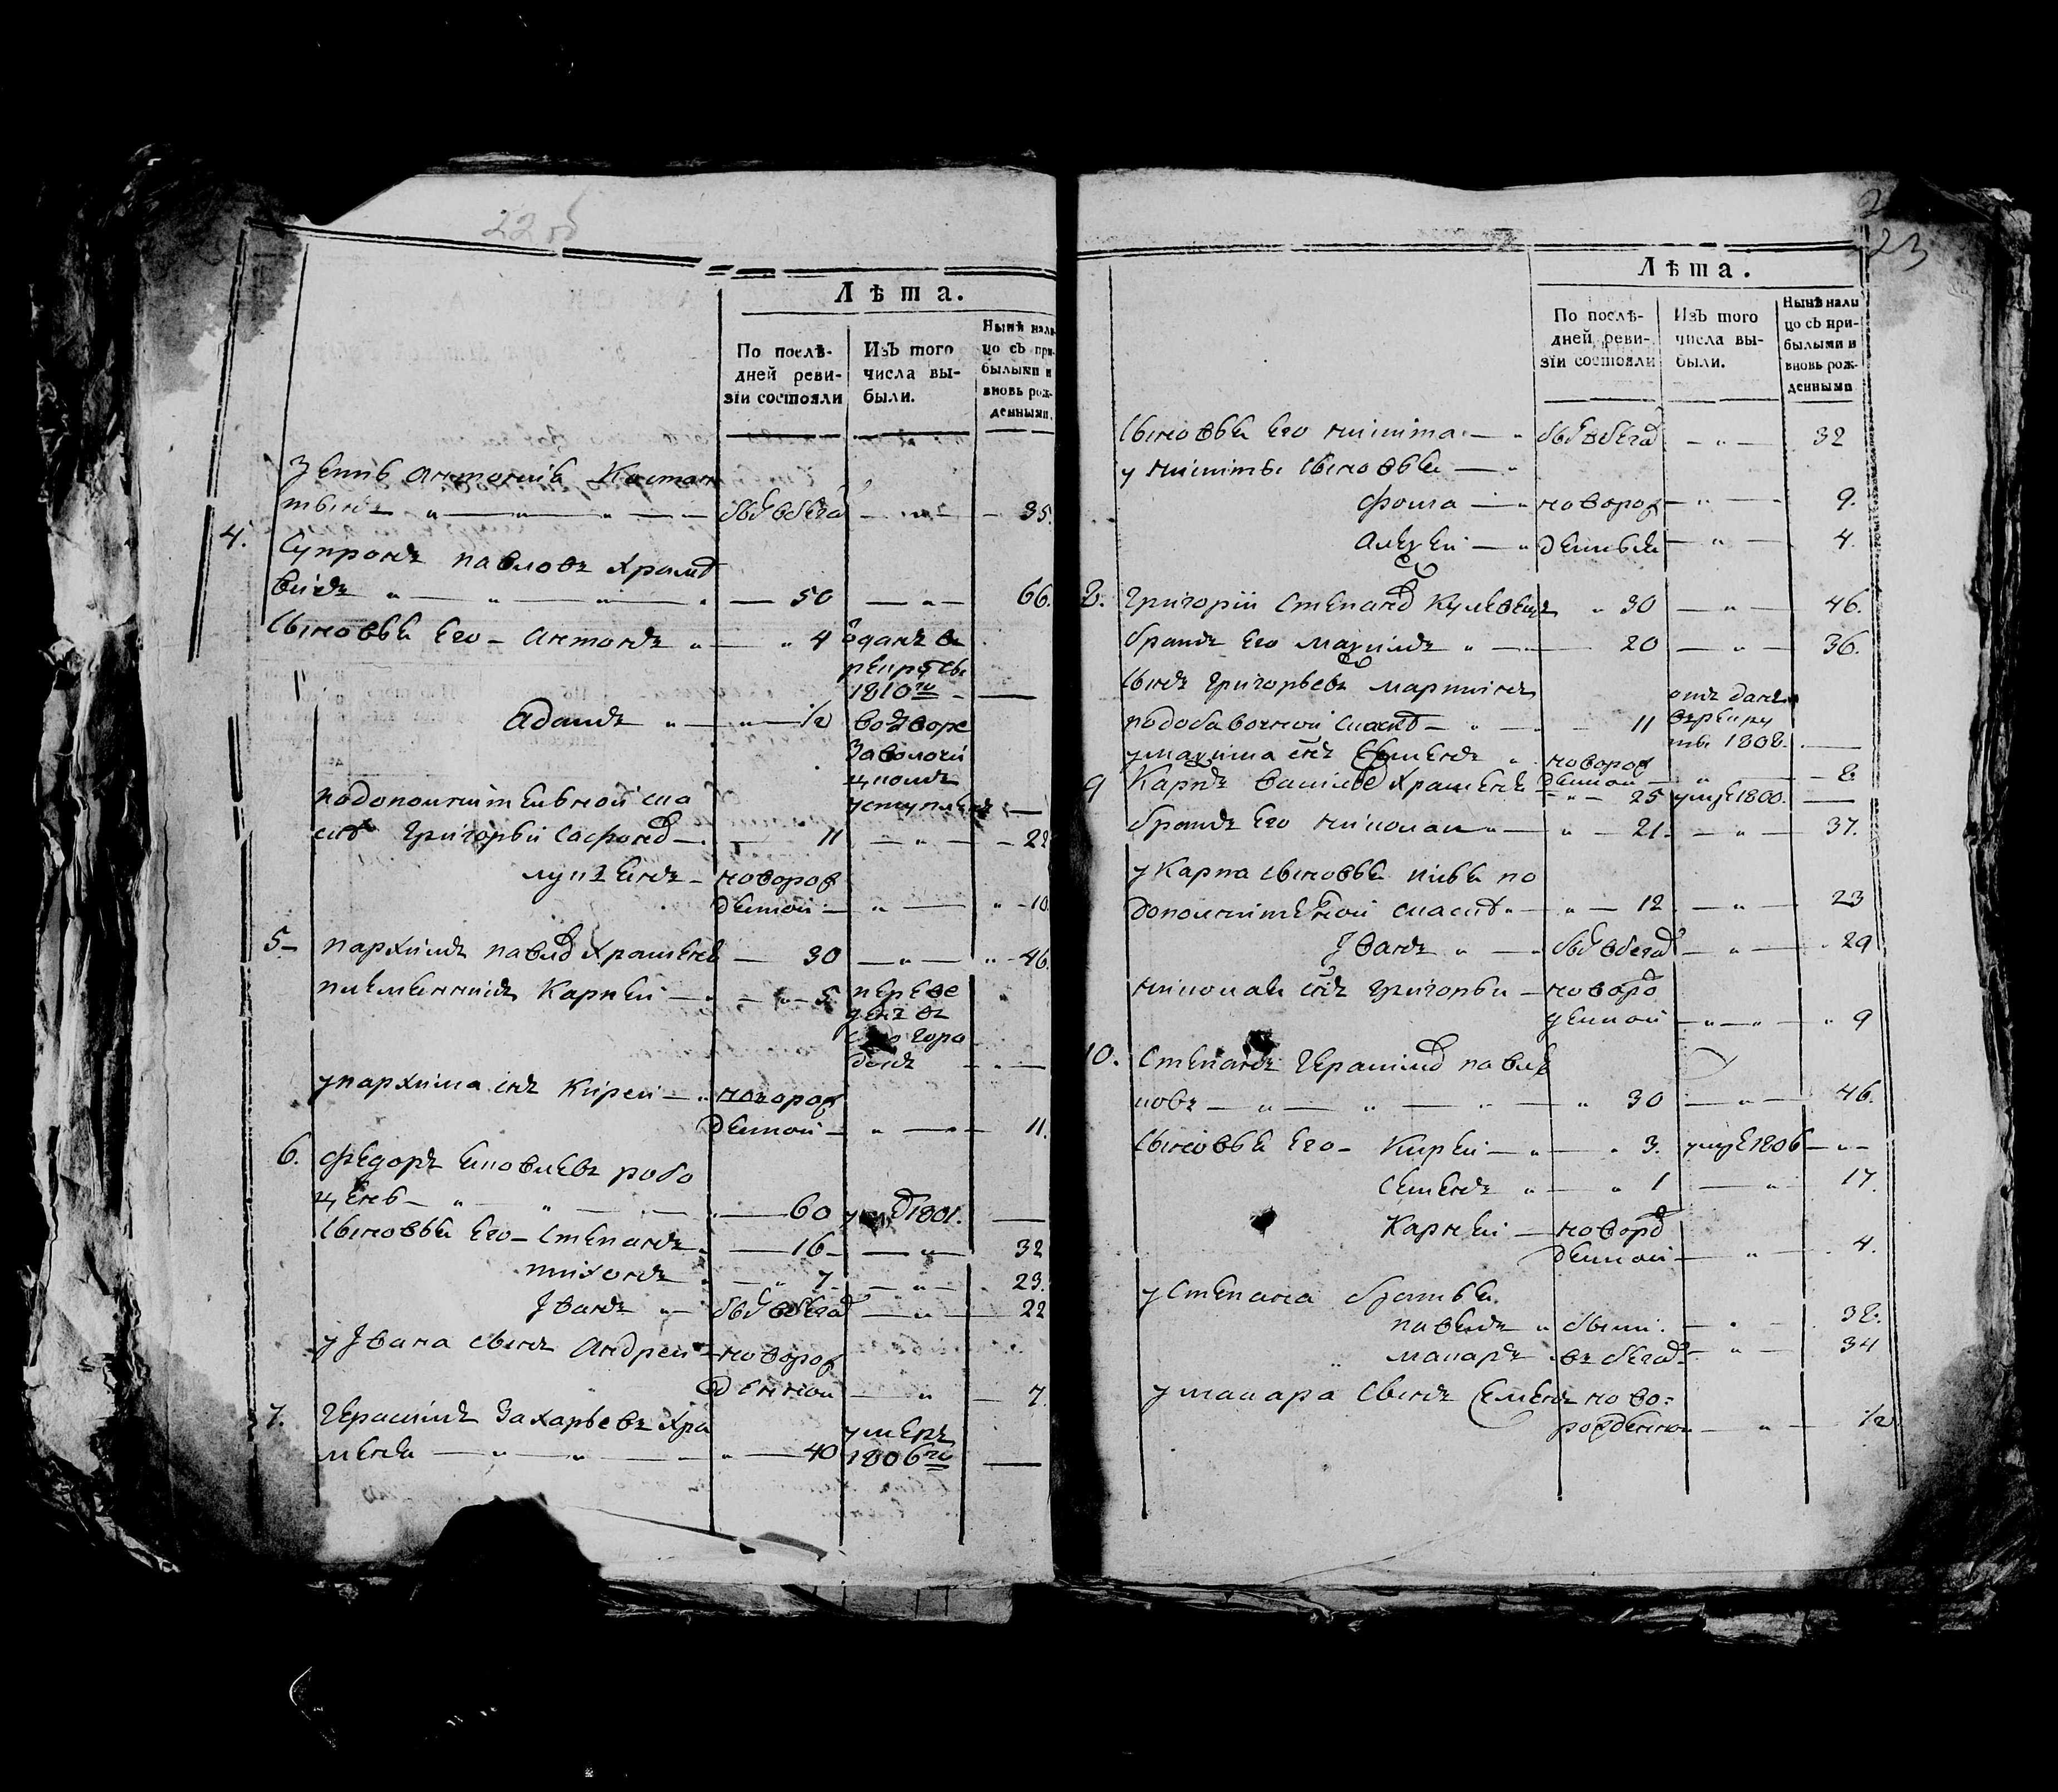 22 об
Лѣта.
По послѣ-
дней реви-
зіи состояли
Изъ того
числа вы-
были.
Нынѣ нали-
цо съ при-
былыми и
вновь рож-
денными.
Зять Антоній Костан
тынъ был вбега 35.
4. Супронъ павловъ Храмо
вичъ 50 66.
Сыновья Его Антонъ 4 одан в
рекруты
1810го
Адамъ 1/2 во дворе
Заволочи
уступлен
подополнительной ска
ске Григорьи Сафонов 11 22
новорож
денной 10
5 пархимъ павлов Храменя 30 46.
племянникъ Карней 5 переве
денъ в
у пархима снъ Кирей новорож
денной 11.
6. Федоръ яковлевъ робо
60 1801.
Сыновья Его Степанъ 16 32
тихонъ 7 23.
Иванъ был вбега 22
у Ивана сынъ Андреи новорож
денной 7.
7. Герасимъ Захарьевъ Хра
меня 40 умеръ
1806го
23
Лѣта.
По послѣ-
дней реви-
зіи состояли
Изъ того
числа вы-
были.
Нынѣ нали
цо съ при-
былыми и
вновь рож-
денными
Сыновья Его никита был вбега 32
у никиты сыновья
фома новорож 9.
Алексеи денныя 4.
8. Григоріи Степанов 30 46.
братъ Его Максимъ 20 36.
сынъ Григорьевъ мартинъ отданъ
подобавочной скаске 11 в рекру
ты 1808.
у максима снъ Семенъ новорож
денной 8
9 Карпъ Васильев Храменя 25 умре 1800.
братъ Его николаи 21 37.
у Карпа сыновья по
дополнителной скаске 12 23
Иванъ был вбега 29
николая снъ Григорьи новоро
жденной 9
10. Степанъ Герасимов павлю
ковъ 30 46.
Сыновья Его Кирей 3. умре 1806
Семенъ 1 17.
Карней новорож
денной 4.
у Степана братья
павелъ были 38.
макаръ въ бегах 34
у макара сынъ Семенъ ново-
рожденной 1/2